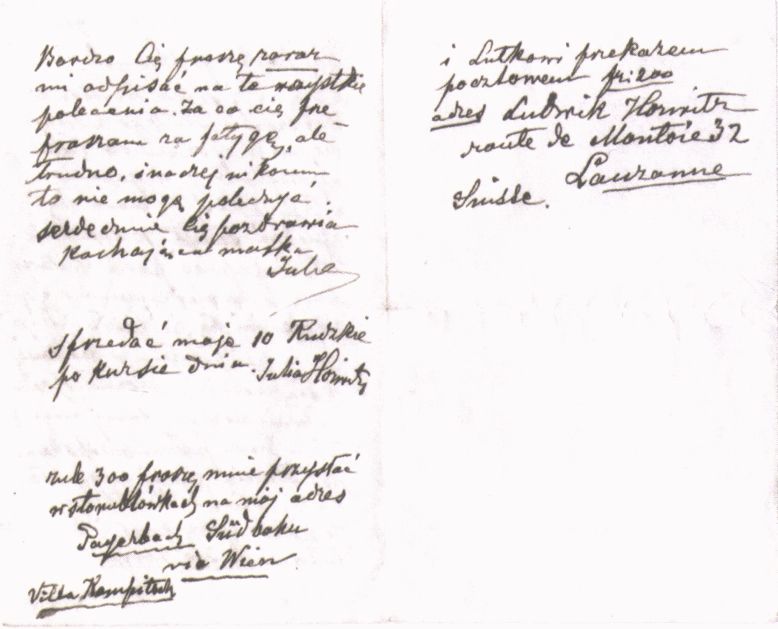 Bardzo Cię proszę zaraz
mi odpisać na te wszystkie
polecenia. Za co cię prze
praszam za fatygę, ale
trudno, inaczej nikomu
to nie mogę poleczyć.
serdecznie Cię pozdrawia
kochająca matka
Julia
sprzedać moje 10 Rudzkie
po kursie dnia. Julia Horwitz
rule 300 proszę mnie przysłać
w storublówkach na mój adres
Payerbach Südbahn
via Wien
Villa Kampitsch
i Lutkowi przekazem
pocztowem fr: 200
adres Ludwik Horwitz
route de Montoie 32
Lauzanne
Suisse.